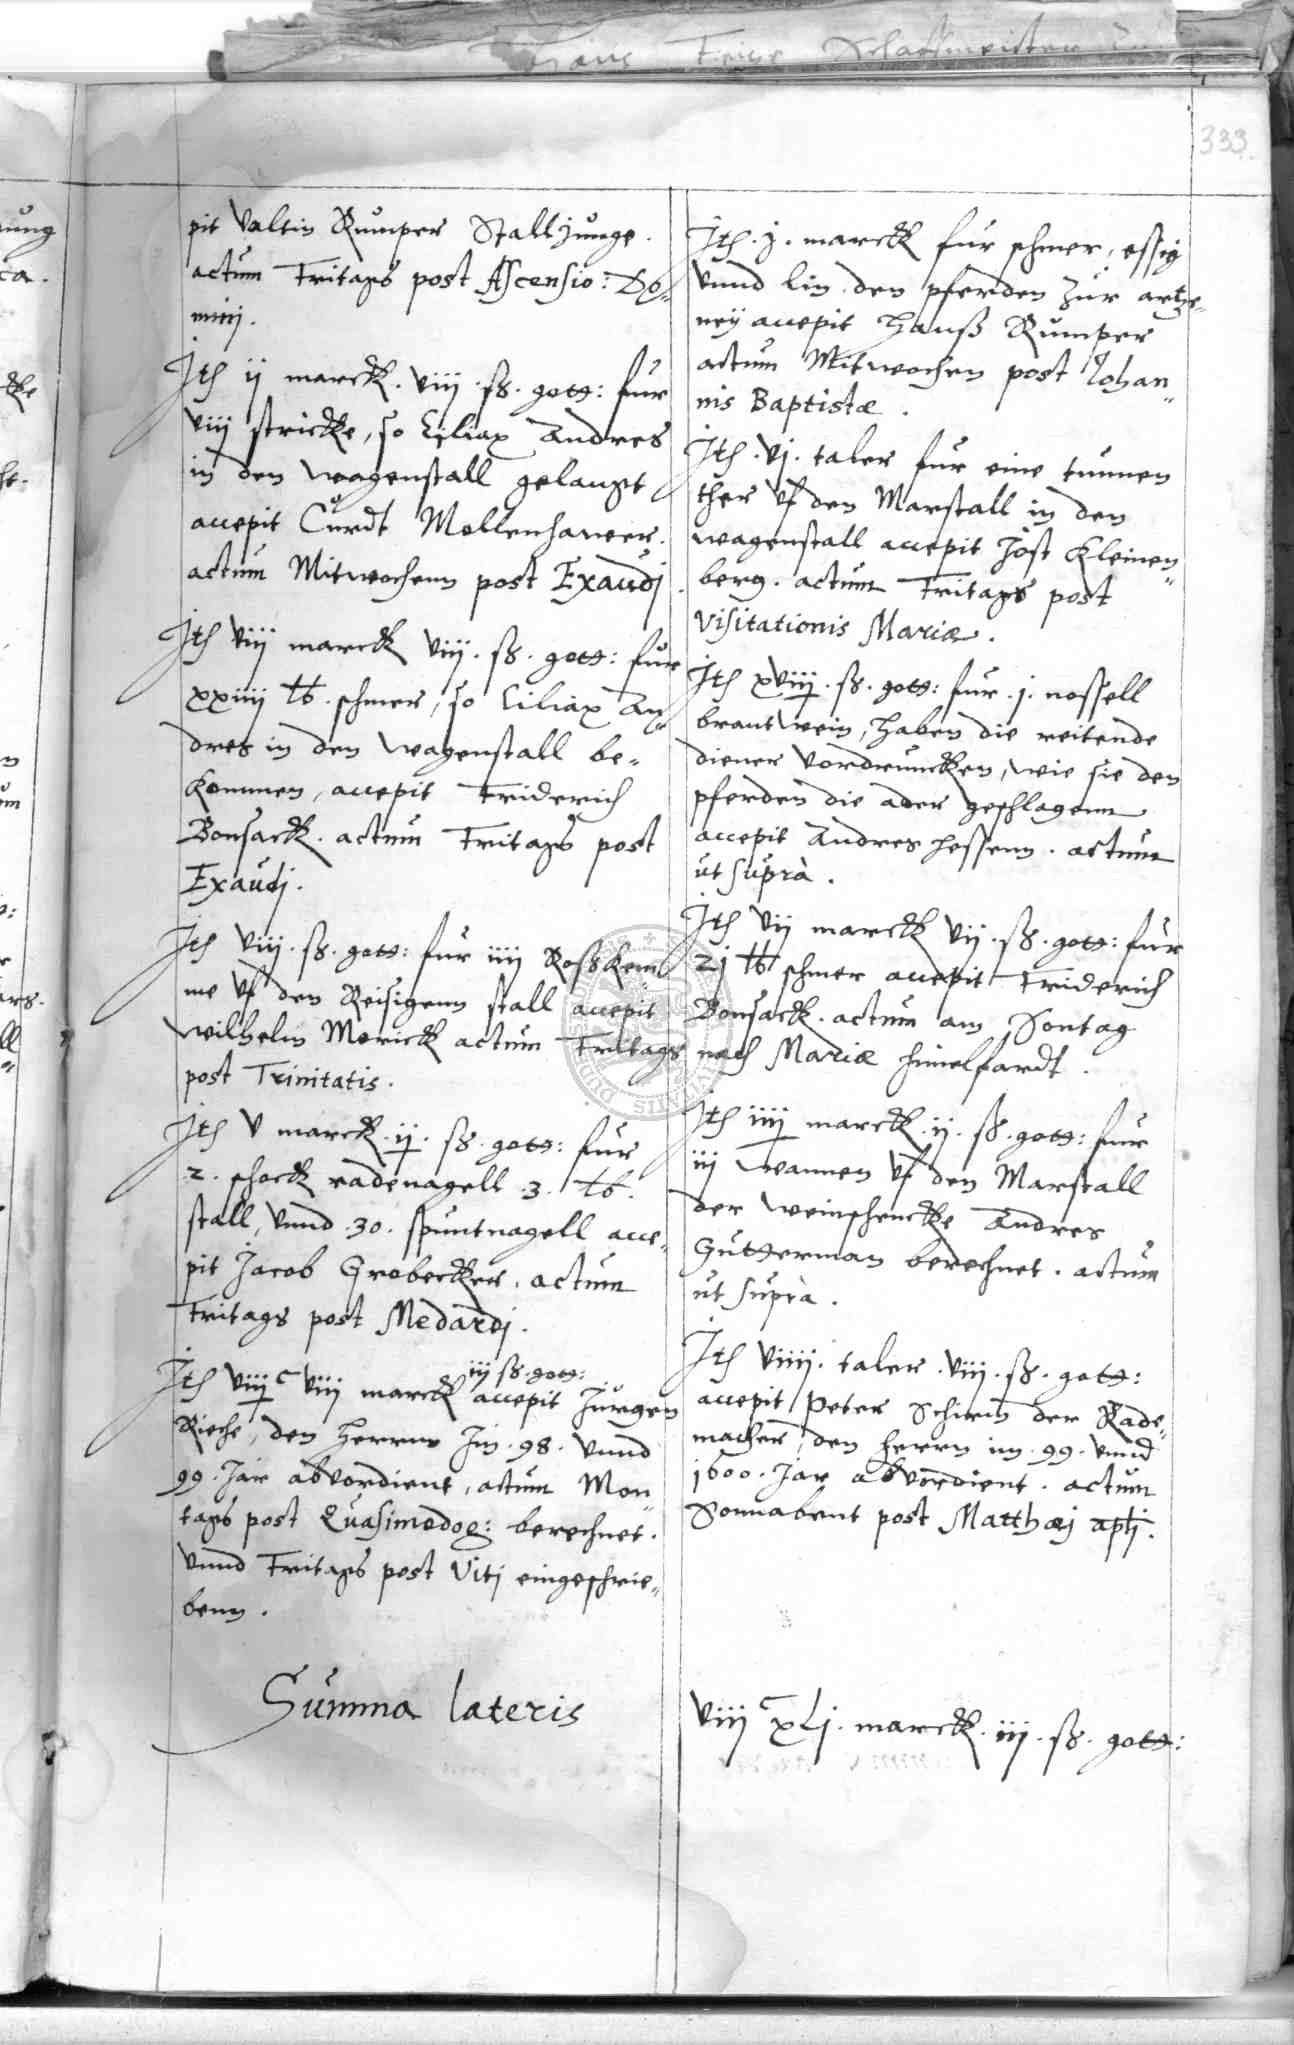 333.
pit Valtin Rumper Stalljunge.
actum Fritags post Ascensio: Do=
minj.
Jth ij marck. viij. ß. gott: fur
viij stricke, so Ciliax Andres
in den wagenstall gelangt
accepit Curdt Mollenhawer.
actum Mitwochenn post Exaudj.
Jth viij marck viij. ß. gott: fur
xxiiij ℔. schmer, so Ciliax An=
dres in den wagenstall be=
kommen, accepit Friderich
Bonsack. actum Fritags post
Exaudj.
Jth viij. ß. gott: fur iiij Roßkem=
me vf den Reisigenn stall accepit
Wilhelm Merick actum Fritags
post Trinitatis.
Jth v marck. ij. ß. gott: fur
2. schock radenagell 3. ℔.
stall, vnnd .30. spuntnagell acce=
pit Jacob Grobecker. actum
Fritags post Medardj.
iij ß. gott:
Jth viij C viij marck accepit Jurgen
Rieche, den Herrnn Jm .98. vnnd
99. Jar abvordient, actum Mon=
tags post Quasimodog: berechnet.
vnnd Fritags post Viti eingeschrie=
benn.
Summa lateris
Jth. j. marck fur schmer, essig
vnnd lin den pferden zur artze=
neÿ accepit Hanß Rumper
actum Mitwochen post Johan=
nis Baptistæ.
Jth. vj. taler fur eine tunnen
ther vf den Marstall in den
wagenstall accepit Jost Kleinen=
berg. actum Fritags post
visitationis Mariæ.
Jth xviij. ß. gott: fur .j. nossell
brantwein, haben die reitende
diener vordruncken, wie sie den
pferden die ader geschlagenn
accepit Andres Hessenn. actum
ut suprà.
Jth vij marck vij. ß. gott: fur
21 ℔ schmer accepit Friderich
Bonsack. actum am Sontag
nach Mariæ himelfardt.
Jth iiij marck. ij. ß. gott: fur
iij wannen vf den Marstall
der weinschencke Andres
Gutterman berechnet. actum
ut suprà.
Jth viiij. taler. viij. ß. gott:
accepit Peter Schirm der Rade=
macher, den herrn im .99. vnnd
1600. Jar abvordient. actum
Sonnabent post Matthæj aplj.
viij C xLj. marck. iij. ß. gott: